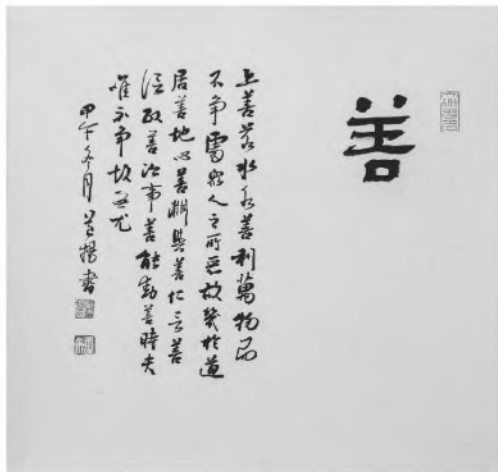 善
上善若水水善利萬物而
不争處眾人之所惡故幾於道
居善地心善淵與善仁言善
信政善治事善能動善時夫
唯不争故無尤
甲午冬月揚書